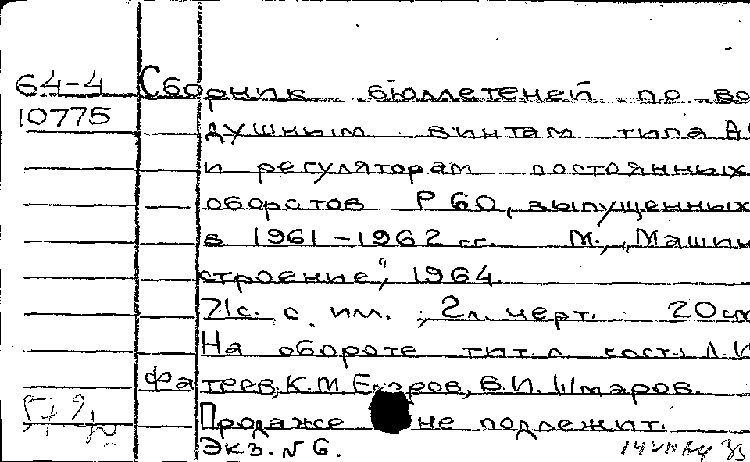 64-4 Сборник бюллетеней по во
10775 душным винтам типа
и регуляторам постоянных
оборотов Р 60, выпущенных
в 1961-1962 гг. М., „Машин
строение", 1964.
71с. с ил.; 2л. черт. 20см
На обороте тит. л. сост.: Л.И.
Фатеев, К.М. Егоров, В.И. Шмаров.
Продаже не подлежит.
Экз. № 6.